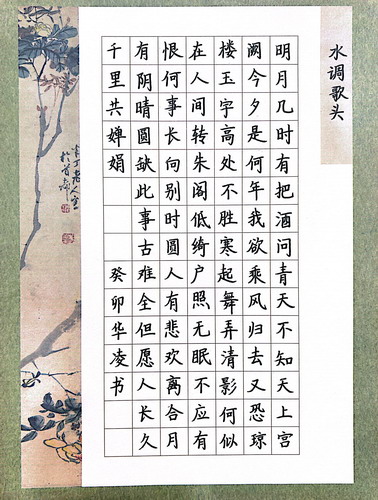 水调歌头
明月几时有把酒问青天不知天上宫
阙今夕是何年我欲乘风归去又恐琼
楼玉宇高处不胜寒起舞弄清影何似
在人间转朱阁低绮户照无眠不应有
恨何事长向别时圆人有悲欢离合月
有阴晴圆缺此事古难全但愿人长久
千里共婵娟 癸卯华凌书